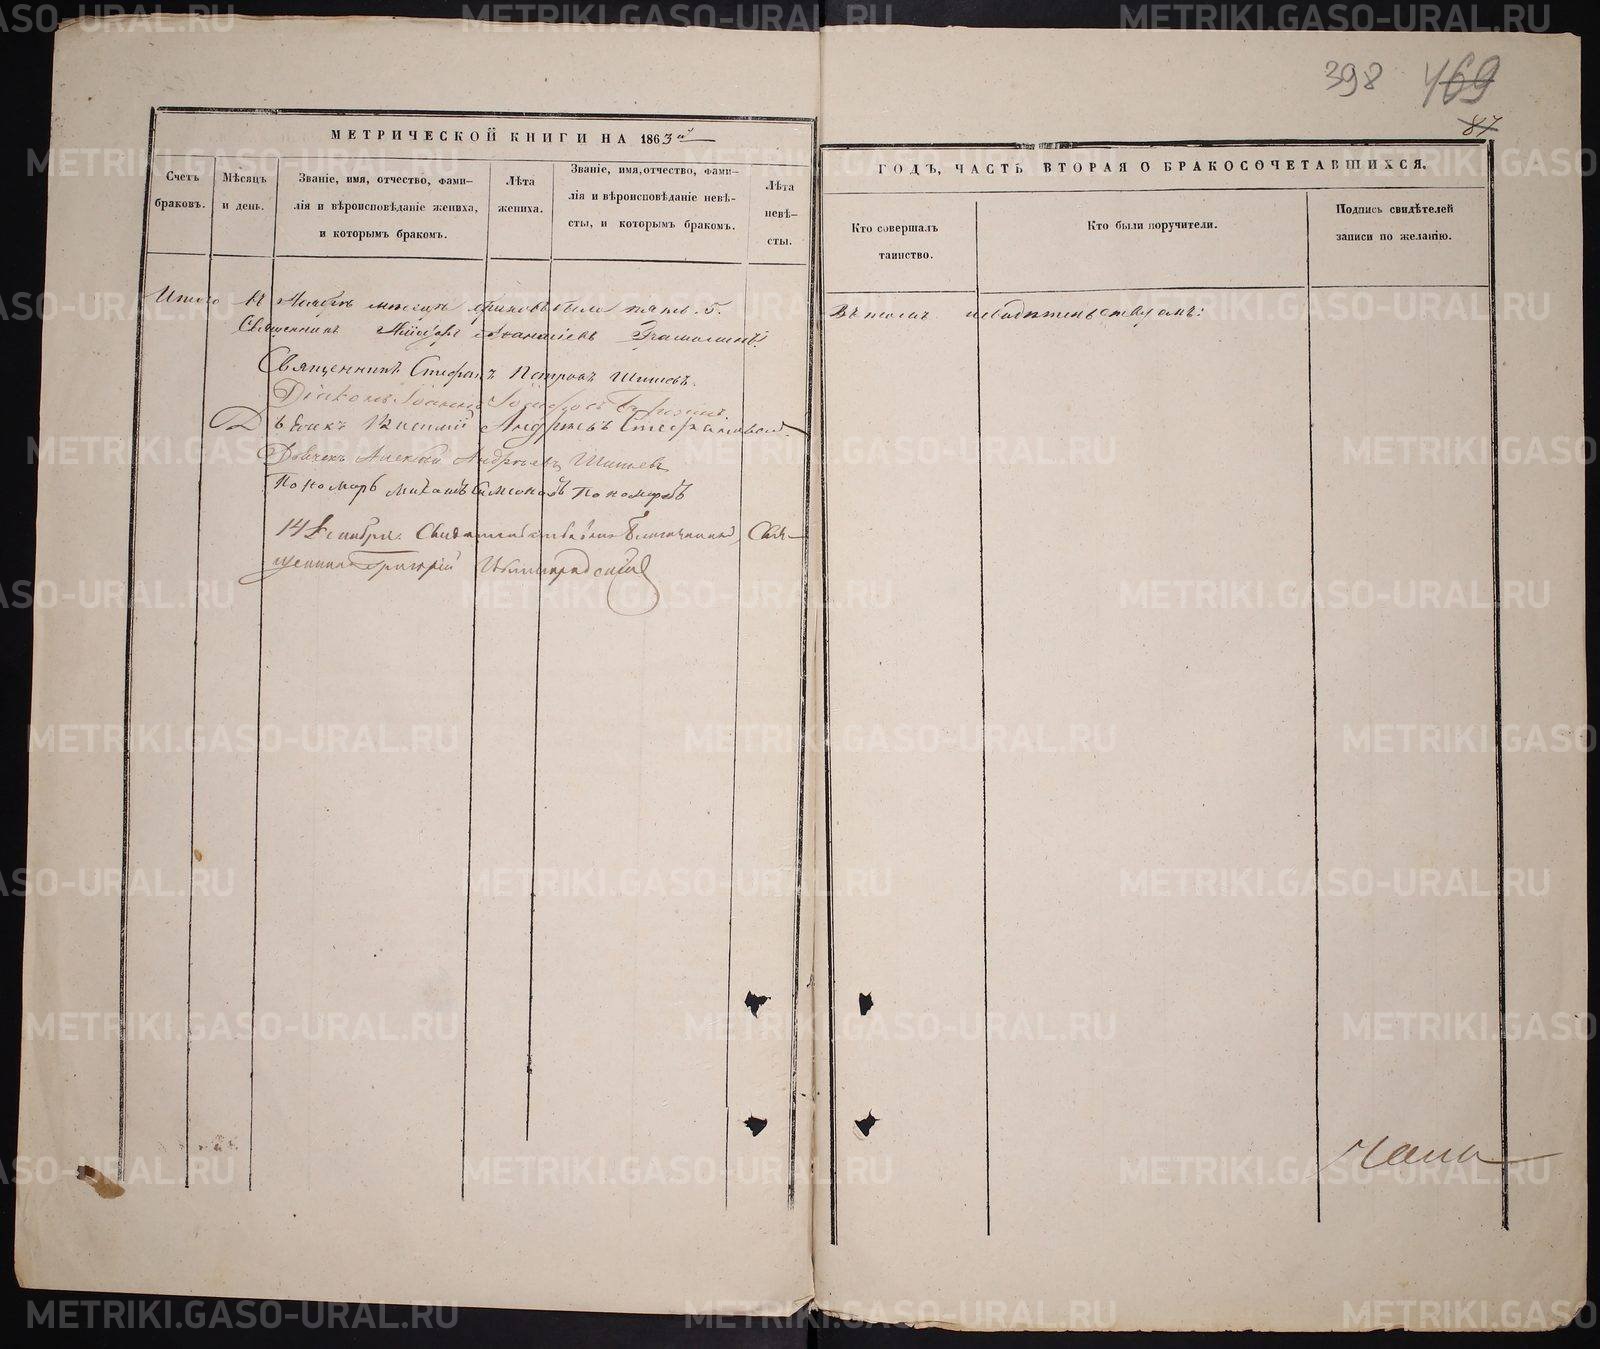 398 469
87
МЕТРИЧЕСКОЙ КНИГИ НА 1863й
ГОДЪ, ЧАСТЬ ВТОРАЯ О БРАКОСОЧЕТАВШИХСЯ.
Счетъ браковъ.
Мѣсяцъ и день.
Званіе, имя, отчество, фами-
лія и вѣроисповѣданіе жениха,
и которымъ бракомъ.
Лѣта жениха.
Званіе, имя, отчество, фами-
лія и вѣроисповѣданіе невѣ-
сты, и которымъ бракомъ.
Лѣта невѣ-
сты.
Кто совершалъ
таинство.
Кто были поручители.
Подпись свидѣтелей
записи по желанію.
Итого въ Ноябрѣ мѣсяцѣ браковъ было пять. 5.
Священникъ
Священникъ Стефанъ Петровъ Шишевъ.
Діаконъ Іоаннъ
Дьячекъ Василій Андреевъ
Дьячекъ Алексѣй Андреевъ Шишевъ
Пономарь Михаилъ Симеоновъ Пономаревъ
14 Декабря. Свидѣтельствовалъ Благочинный, Свя-
щенникъ Григорій
METRIKI.GASO-URAL.RU